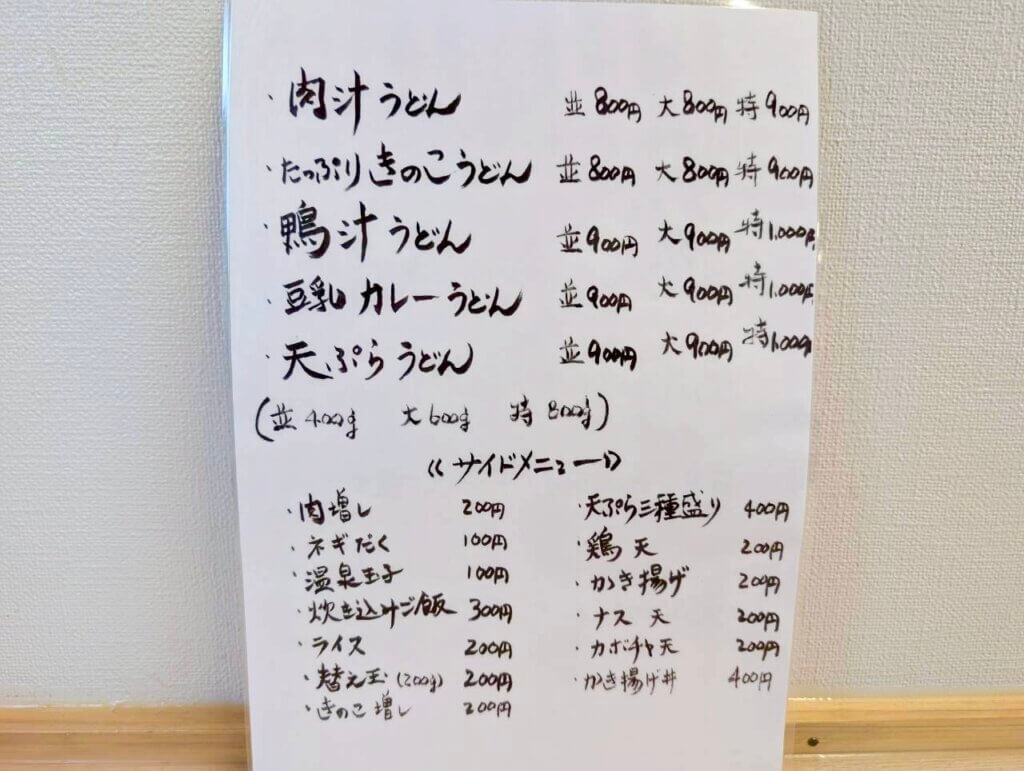 ・肉汁うどん 並800円 大800円 特900円
・たっぷりきのこうどん 並800円 大800円 特900円
・鴨汁うどん 並900円 大900円 特1,000円
・豆乳カレーうどん 並900円 大900円 特1,000円
・天ぷらうどん 並900円 大900円 特1,000円
(並400g 大600g 特800g)
《サイドメニュー》
・肉増し 200円 ・天ぷら三種盛り 400円
・ネギだく 100円 ・鶏天 200円
・温泉玉子 100円 ・かき揚げ 200円
・炊き込みご飯 300円 ・ナス天 200円
・ライス 200円 ・カボチャ天 200円
・替え玉(200g) 200円 ・かき揚げ丼 400円
・きのこ増し 200円